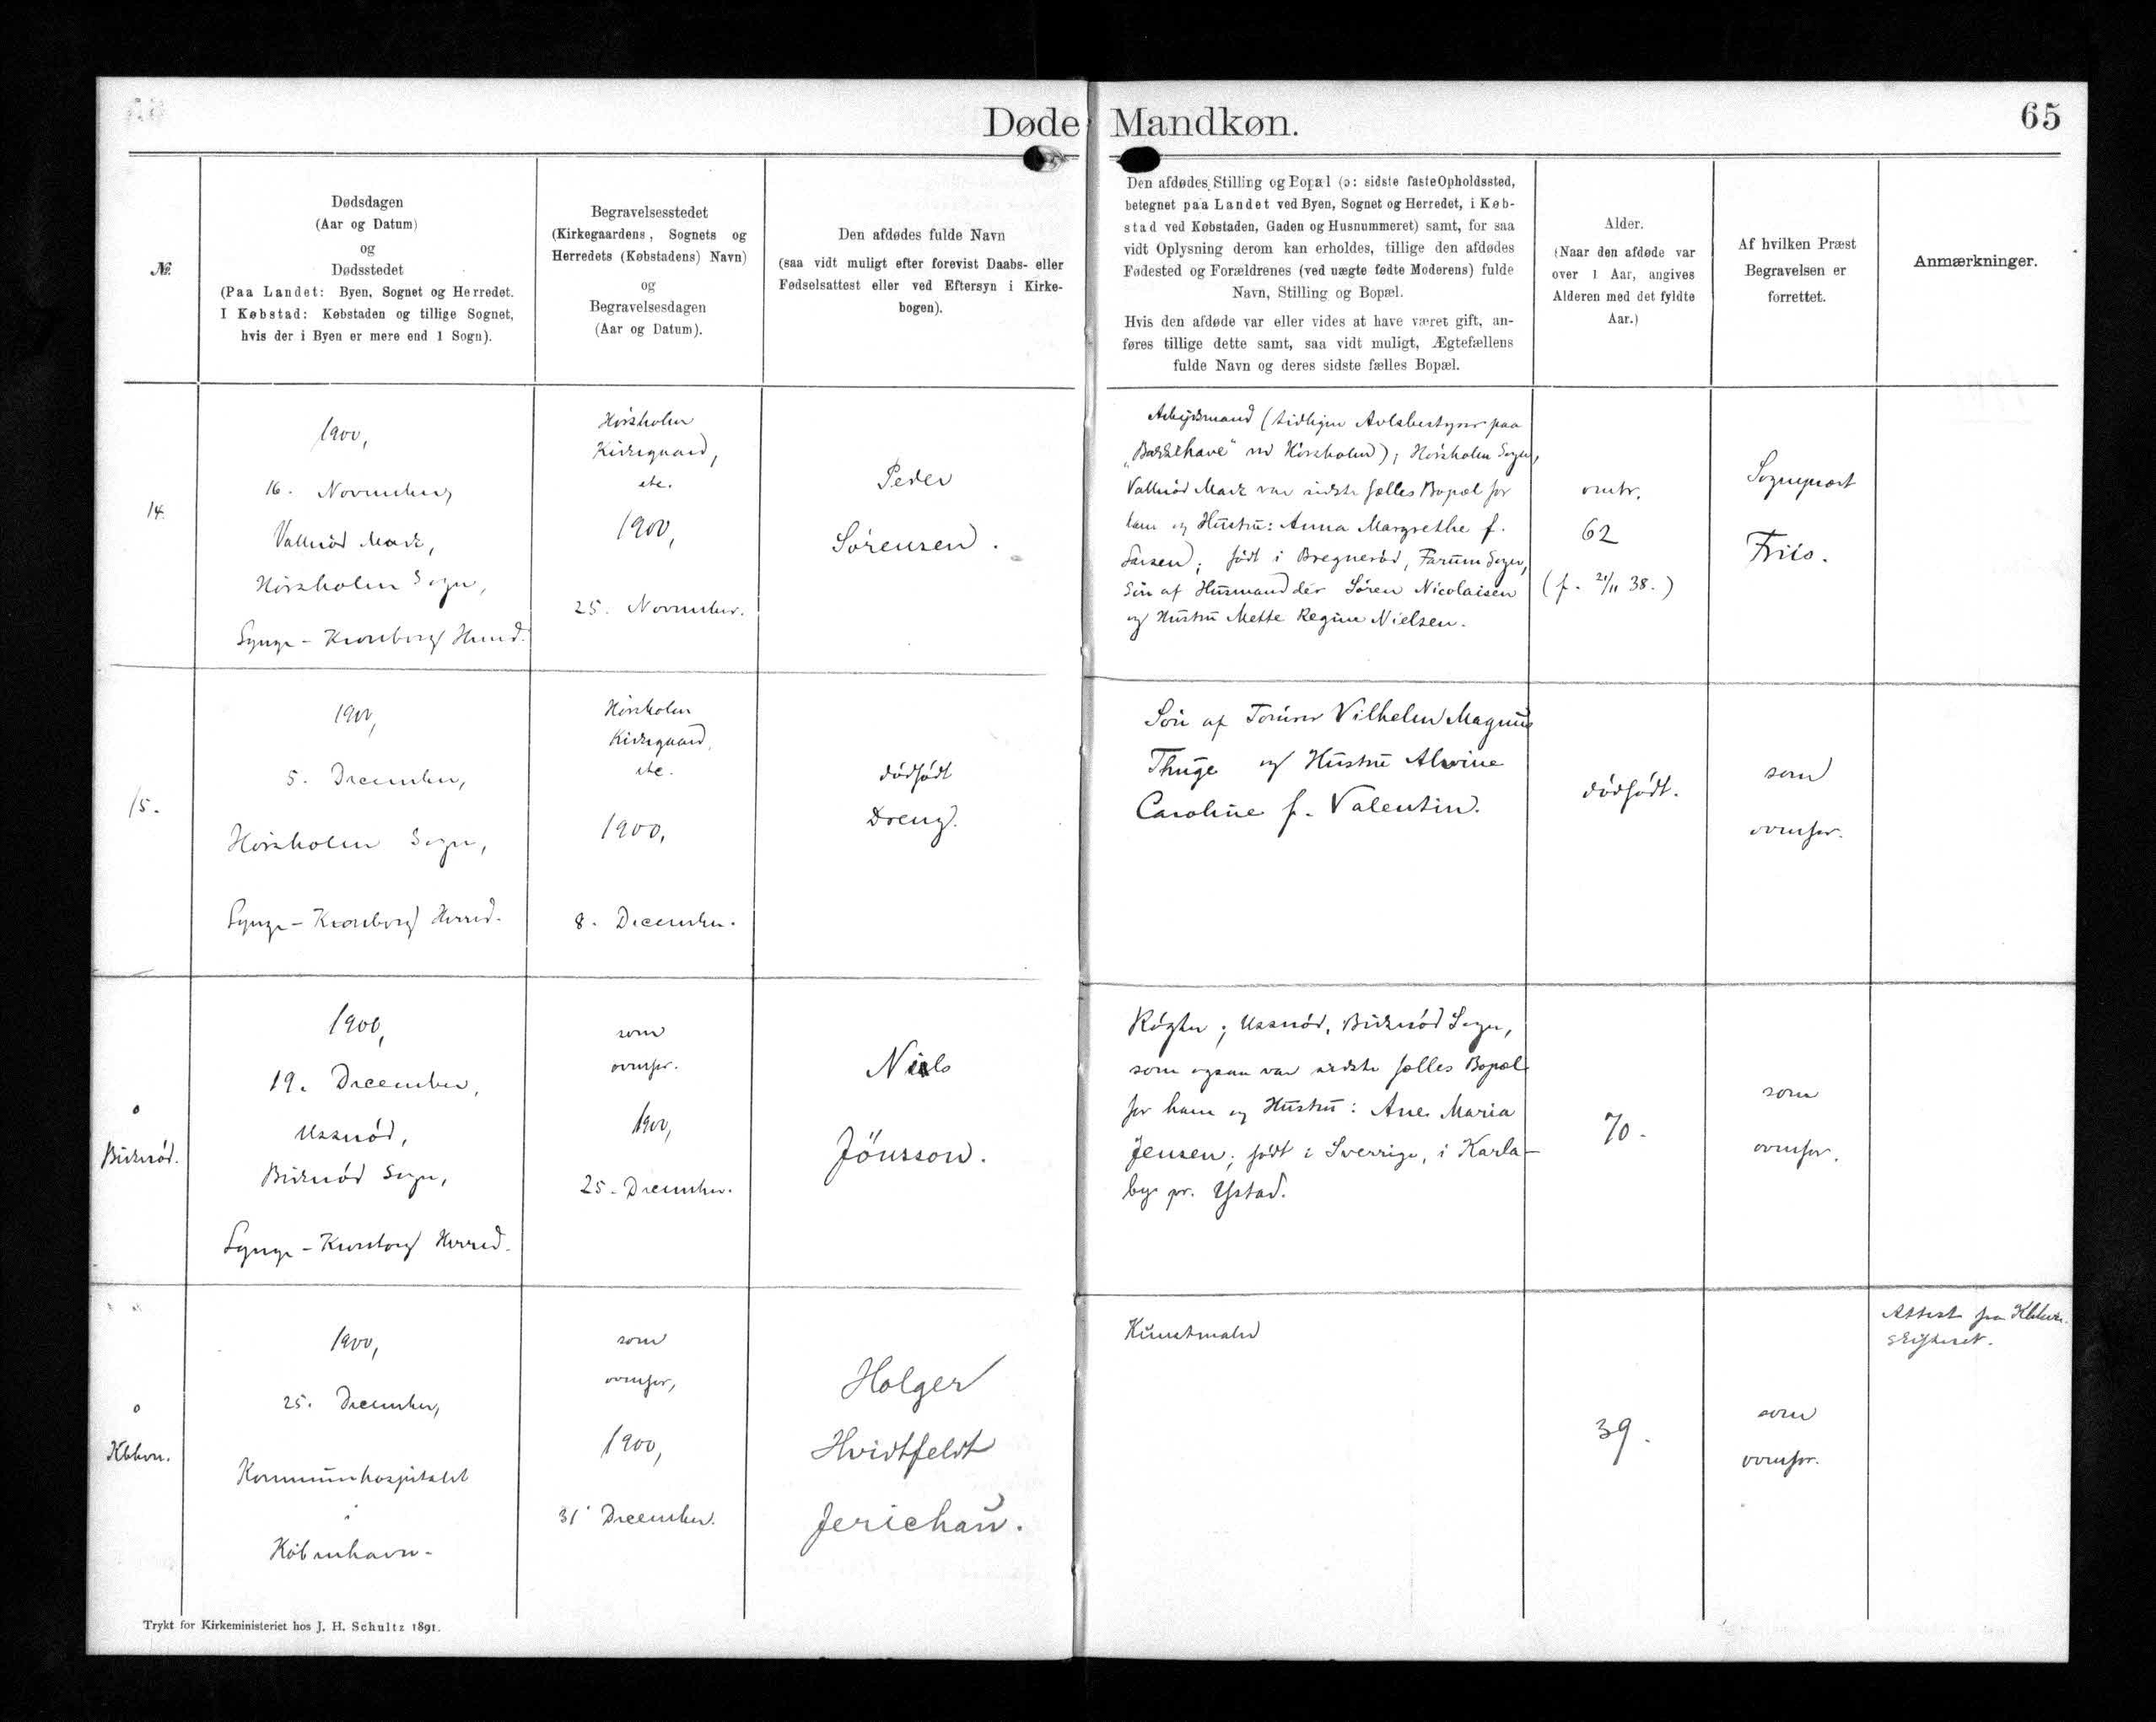 Døde Mandkøn.
65
№.
Dødsdagen
(Aar og Datum)
og
Dødsstedet
(Paa Landet: Byen, Sognet og Herredet.
I Købstad: Købstaden og tillige Sognet,
hvis der i Byen er mere end 1 Sogn).
Begravelsesstedet
(Kirkegaardens, Sognets og
Herredets (Købstadens) Navn)
og
Begravelsesdagen
(Aar og Datum).
Den afdødes fulde Navn
(saa vidt muligt efter forevist Daabs- eller
Fødselsattest eller ved Eftersyn i Kirke-
bogen).
Den afdødes Stilling og Bopæl (ɔ: sidste faste Opholdssted,
betegnet paa Landet ved Byen, Sognet og Herredet, i Køb-
stad ved Købstaden, Gaden og Husnummeret) samt, for saa
vidt Oplysning derom kan erholdes, tillige den afdødes
Fødested og Forældrenes (ved uægte fødte Moderens) fulde
Navn, Stilling og Bopæl.
Hvis den afdøde var eller vides at have været gift, an-
føres tillige dette samt, saa vidt muligt, Ægtefællens
fulde Navn og deres sidste fælles Bopæl.
Alder.
(Naar den afdøde var
over 1 Aar, angives
Alderen med det fyldte
Aar.)
Af hvilken Præst
Begravelsen er
forrettet.
Anmærkninger.
14.
1900,
16. November,
Vallerød Mark,
Hørsholm Sogn,
Lynge-Kronborg Herred.
Hørsholm
Kirkegaard,
etc.
1900,
25. November.
Peder
Sørensen.
Arbejdsmand (tidligere Avlsbestyrer paa
"Bakkehave" ved Hørsholm); Hørsholm Sogn,
Vallerød Mark var sidste fælles Bopæl for
ham og Hustru: Anna Margrethe f.
Larsen; født i Bregnerød, Farum Sogn,
Søn af Husmand der Søren Nicolaisen
og Hustru Mette Regine Nielsen.
omtr.
62
(f. 21/11 38.)
Sognepræst
Friis.
15.
1900,
5. December,
Hørsholm Sogn,
Lynge-Kronborg Herred.
Hørsholm
Kirkegaard,
etc.
1900,
8. December.
dødfødt
Dreng.
Søn af Tømrer Vilhelm Magnus
Thuge og Hustru Alwine
Caroline f. Valentin.
dødfødt.
som
ovenfor.
0
Birkerød.
1900,
19. December,
Usserød,
Birkerød Sogn,
Lynge-Kronborg Herred.
som
ovenfor.
1900,
25. December.
Niels
Jönsson.
Røgter; Usserød, Birkerød Sogn,
som ogsaa var sidste fælles Bopæl
for ham og Hustru: Ane Maria
Jensen; født i Sverrige, i Karla-
by pr. Ystad.
70.
som
ovenfor.
0
Kbhvn.
1900,
25. December,
Kommunehospitalet
i
København.
som
ovenfor,
1900,
31 December.
Holger
Hvidtfeldt
Jerichau.
Kunstmaler
39.
som
ovenfor.
Attest fra Kbhvn.
skifteret.
Trykt for Kirkeministeriet hos J. H. Schultz 1891.